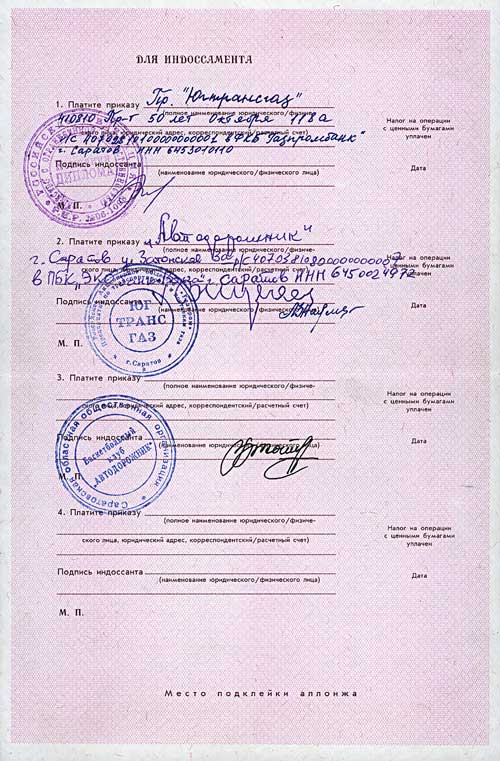 ДЛЯ ИНДОССАМЕНТА
1. Платите приказу Пр. "Югтрансгаз"
(полное наименование юридического/физиче-
410810 Пр-т 50 лет Октября 118а
ского лица, юридический адрес, корреспондентский/расчетный счет)
"Газпромбанк"
г. Саратов ИНН 6453010110
Налог на операции
с ценными бумагами
уплачен
Подпись индоссанта
(наименование юридического/физического лица)
Дата
М. П.
ДИПЛОМА
2. Платите приказу "Автодорожник"
(полное наименование юридического/физиче-
г. Саратов
ского лица, юридический адрес, корреспондентский/расчетный счет)
г. Саратов ИНН 6450024972
Налог на операции
с ценными бумагами
уплачен
Подпись индоссанта
(наименование юридического/физического лица)
Дата
М. П.
ЮГ
ТРАНС
ГАЗ
г. Саратов
3. Платите приказу
(полное наименование юридического/физиче-
ского лица, юридический адрес, корреспондентский/расчетный счет)
Налог на операции
с ценными бумагами
уплачен
Подпись индоссанта
(наименование юридического/физического лица)
Дата
М. П.
Саратовская областная общественная организация
Баскетбольный
клуб
"АВТОДОРОЖНИК"
4. Платите приказу
(полное наименование юридического/физиче-
ского лица, юридический адрес, корреспондентский/расчетный счет)
Налог на операции
с ценными бумагами
уплачен
Подпись индоссанта
(наименование юридического/физического лица)
Дата
М. П.
Место подклейки аллонжа